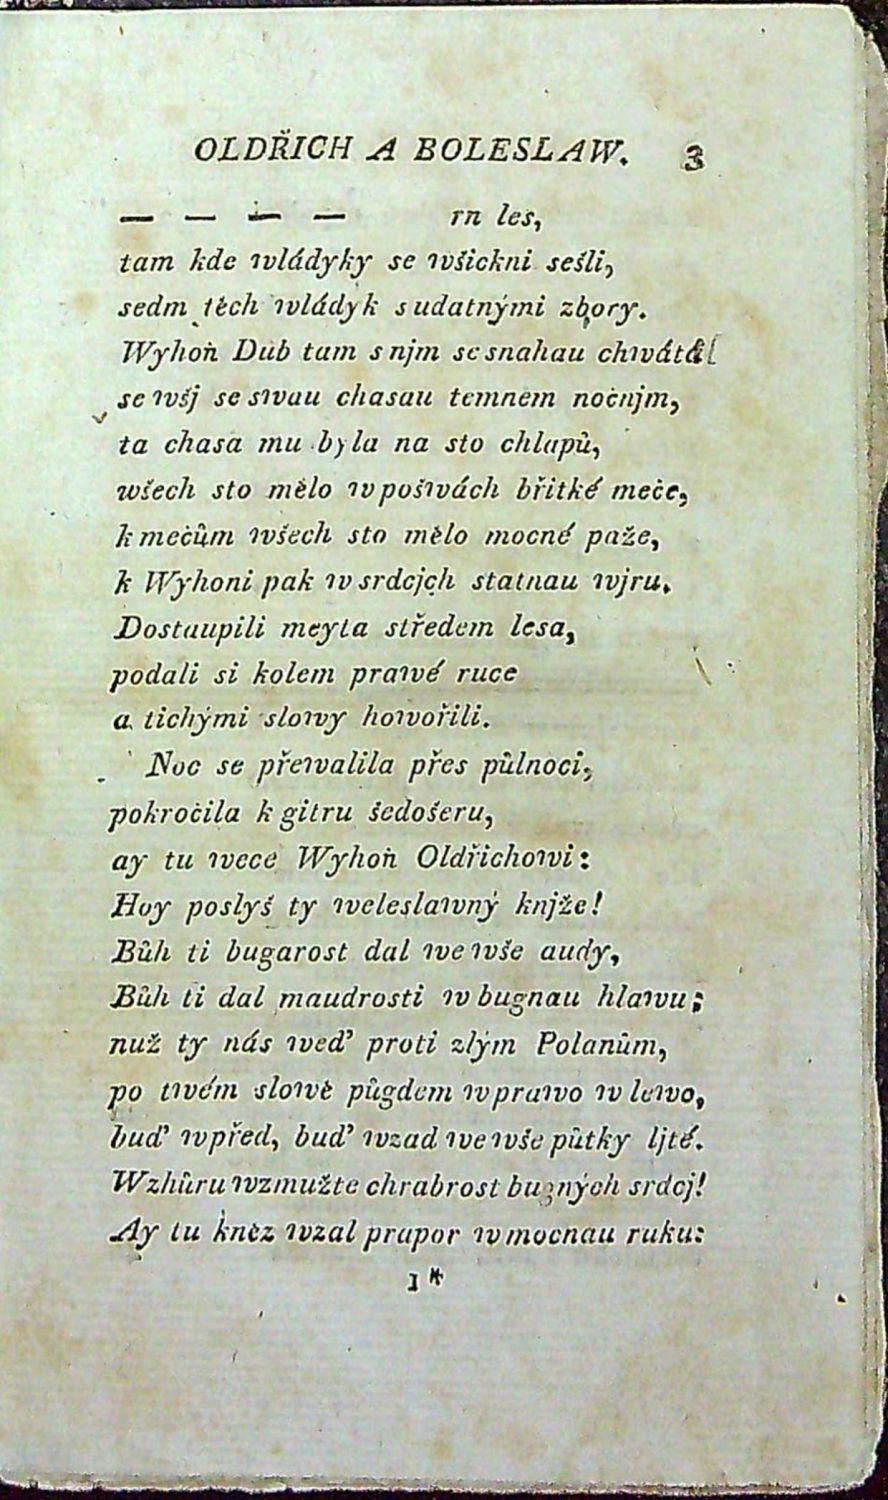 OLDŘICH A BOLESLAW. 3
— — — — rn les,
tam kde wládyky se wšickni sešli,
sedm těch wládyk s udatnými zbory.
Wyhoň Dub tam s njm se snahau chwátál
se wšj se swau chasau temnem nočnjm,
ta chasa mu byla na sto chlapů,
wšech sto mělo w pošwách břitké meče,
k mečům wšech sto mělo mocné paže,
k Wyhoni pak w srdcjch statnau wjru.
Dostaupili meyta středem lesa,
podali si kolem prawé ruce
a tichými slowy howořili.
Noc se přewalila přes půlnoci,
pokročila k gitru šedošeru,
ay tu wece Wyhoň Oldřichowi:
Hoy poslyš ty weleslawný knjže!
Bůh ti bugarost dal we wše audy,
Bůh ti dal maudrosti w bugnau hlawu;
nuž ty nás weď proti zlým Polanům,
po twém slowě půgdem w prawo w lewo,
buď wpřed, buď wzad we wše půtky ljté.
Wzhůru wzmužte chrabrost bugných srdcj!
Ay tu kněz wzal prapor w mocnau ruku:
1*